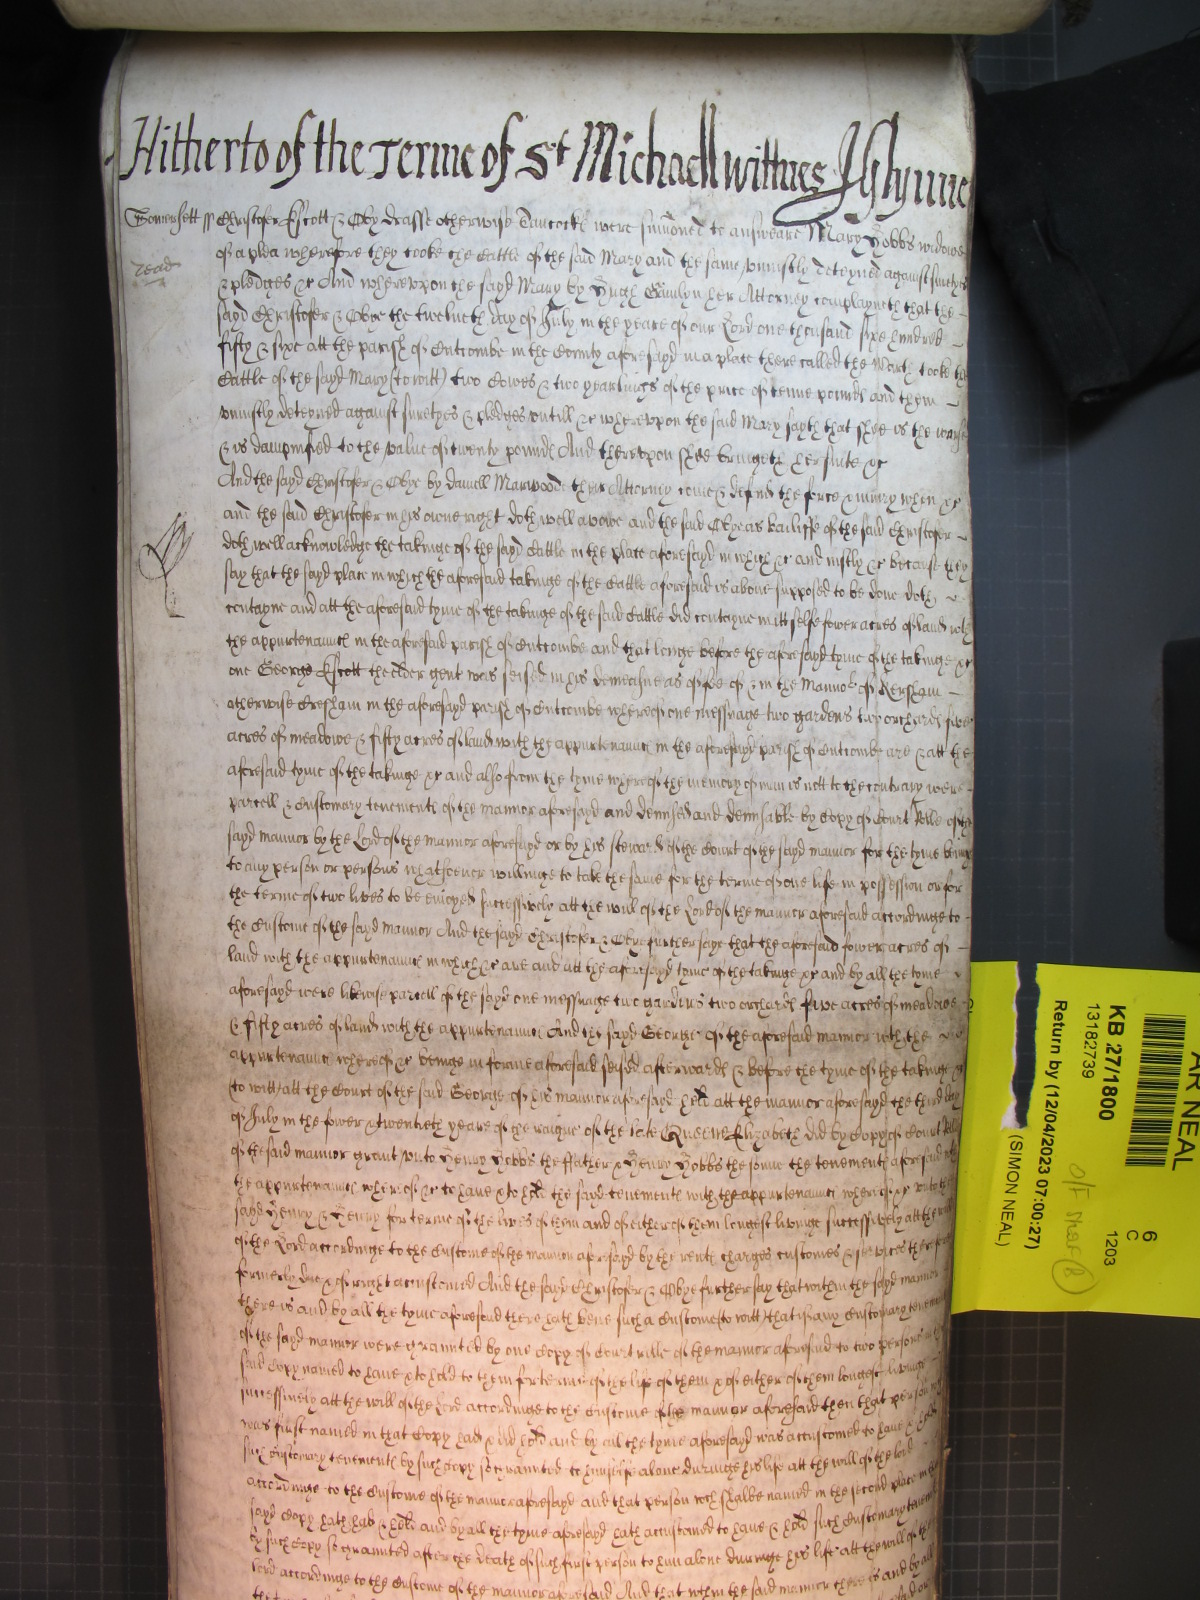 Hitherto of the Terme of St Michaell wittnes J Glynne
Somersett ss Christofer Escott & Obye Drasse otherwise Hancocke were sumoned to answeare Mary Hobbs widowe
read
of a plea wherefore they tooke the Cattle of the said Mary and the same uniustly deteyned against suretyes
& pledges &c And whereupon the sayd Mary by Hugh Hamlyn her Attorney complayneth that the
sayd Christofer & Obye the twelueth day of July in the yeare of our Lord one thousand sixe hundred
fifty & sixe att the parish of Cutcombe in the County aforesayd in a place there called the Marsh tooke the
Cattle of the sayd Mary (to witt) two Cowes & two yearlings of the price of tenne pounds and them
uniustly deteyned against suretyes & pledges untill &c whereupon the said Mary sayth that shee is the worse
& is dampnified to the value of twenty pounds And thereupon shee bringeth her suite &c
And the sayd Christofer & Obye by Daniell Marwood their Attorney come & defend the force & iniury when &c
and the said Christofer in his owne right doth well avowe and the said Obye as bailiffe of the said Christofer
doth well acknowledge the takinge of the sayd Cattle in the place aforesayd in which &c and iustly &c because they
say that the sayd place in which the aforesaid takinge of the Cattle aforesaid is above supposed to be done doth
contayne and att the aforesaid tyme of the takinge of the said Cattle did contayne in itt selfe fower acres of land with
the appurtenaunces in the aforesaid parish of Cutcombe and that longe before the aforesayd tyme of the takinge &c
one George Escott the elder gent was seised in his demeasne as of fee of & in the Mannor of Kersham
otherwise Cresham in the aforesayd parish of Cutcombe whereof one messuage two gardens two orchards five
acres of meadowe & fifty acres of land with the appurtenaunces in the aforesayd parish of Cutcombe are & att the
aforesaid tyme of the takinge &c and also from the tyme whereof the memory of man is nott to the contrary were
parcell & Customary tenements of the mannor aforesayd and demised and demisable by Copy of Court Rolle of the
sayd mannor by the Lord of the mannor aforesayd or by his steward of the Court of the sayd mannor for the tyme beinge
to any person or persons whatsoever willinge to take the same for the terme of one life in possession or for
the terme of two lives to be enioyed successively att the will of the Lord of the mannor aforesaid accordinge to
the Custome of the sayd mannor And the sayd Christofer & Obye further saye that the aforesaid fower acres of
land with the appurtenaunces in which &c are and att the aforesayd tyme of the takinge &c and by all the tyme
aforesayd were likewise parcell of the sayd one messuage two gardens two orchards five acres of meadowe
& fifty acres of land with the appurtenaunces And the sayd George of the aforesaid mannor with the
appurtenaunces whereof &c beinge in forme aforesaid seised afterwards & before the tyme of the takinge &c
to witt att the Court of the said George of his mannor aforesayd held att the mannor aforesayd the third day
of July in the fower & twentieth yeare of the raigne of the late Queene Elizabeth did by Copy of Court Rolle
of the said mannor grant unto Henry Hobbs the ffather & Henry Hobbs the sonne the tenements aforesaid with
the appurtenaunces whereof &c to have & to hold the sayd tenements with the appurtenaunces whereof &c unto the
sayd Henry & Henry for terme of the lives of them and of either of them longest livinge successively att the will
of the Lord accordinge to the Custome of the mannor aforesayd by the rents charges customes & services therefore
formerly due & of right accustomed And the sayd Christofer & Obye further say that within the sayd mannor
there is and by all the tyme aforesaid there hath bene such a Custome to witt that if any Customary tenements
of the sayd mannor were graunted by one Copy of Court rolle of the mannor aforesaid to two persons in the
said Copy named to have & to hold to them for terme of the life of them & of either of them longest livinge
successively att the will of the Lord accordinge to the Custome of the mannor aforesaid then that person who
was first named in that Copy had & did hold and by all the tyme aforesayd was accustomed to have & hold
such customary tenements by such Copy so graunted to himselfe alone duringe his life att the will of the lord
accordinge to the Custome of the mannor aforesayd and that person wch shalbe named in the second place in the
sayd Copy hath had & held and by all the tyme aforesayd hath accustomed to have & hold such Customary tenements
by such Copy so graunted after the death of such first person to him alone duringe his life att the will of the
lord accordinge to the Custome of the mannor aforesaid And that within the said mannor there is and by all
AR NEAL
KB 27/1800
13182739
Return by (12/04/2023 07:00:27)
(SIMON NEAL)
6
C
1203